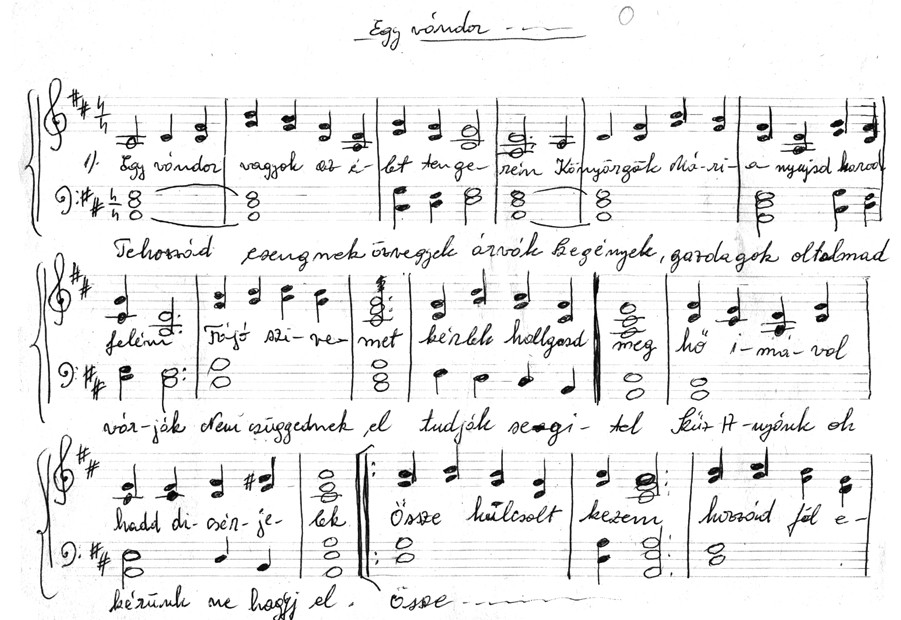 Egy vándor
4/4
1). Egy vándor vagyok az é-let tenge-rén Könyörgök Má-ri-a nyujsd karod
4/4
Tehozzád esengnek özvegyek árvák Szegények, gazdagok oltalmad
felém Fájó szi-ve-met kérlek hallgasd meg hő i-má-val
vár-ják Nem csüggednek el tudják segi-tel Szűz A-nyánk oh
hadd di-csér-je-lek Össze kulcsolt kezem hozzád fel e-
kérünk ne hagyj el. Össze